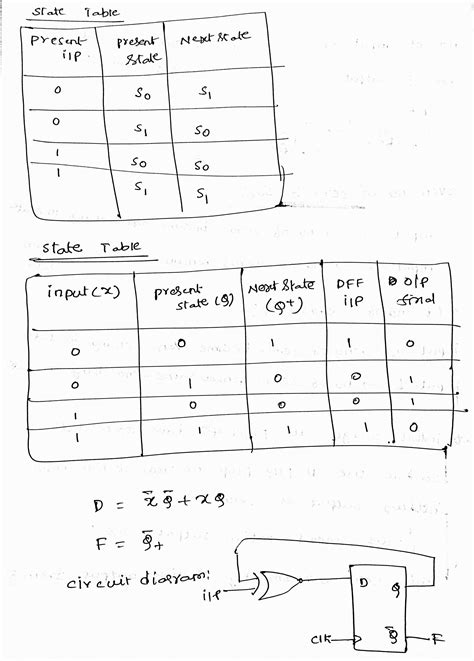 State Table
present i|p
present state
Next state
0 S0 S1
0 S1 S0
1 S0 S0
1 S1 S1
State Table
input (x)
present state (Q)
Next State (Q+)
DFF i|p
D o|p
0 0 1 1 0
0 1 0 0 1
1 0 0 0 1
1 1 1 1 0
D = x̄ Q̄ + x Q
F = Q̄+
circuit diagram:
i|p
D Q
Clk Q̄ F